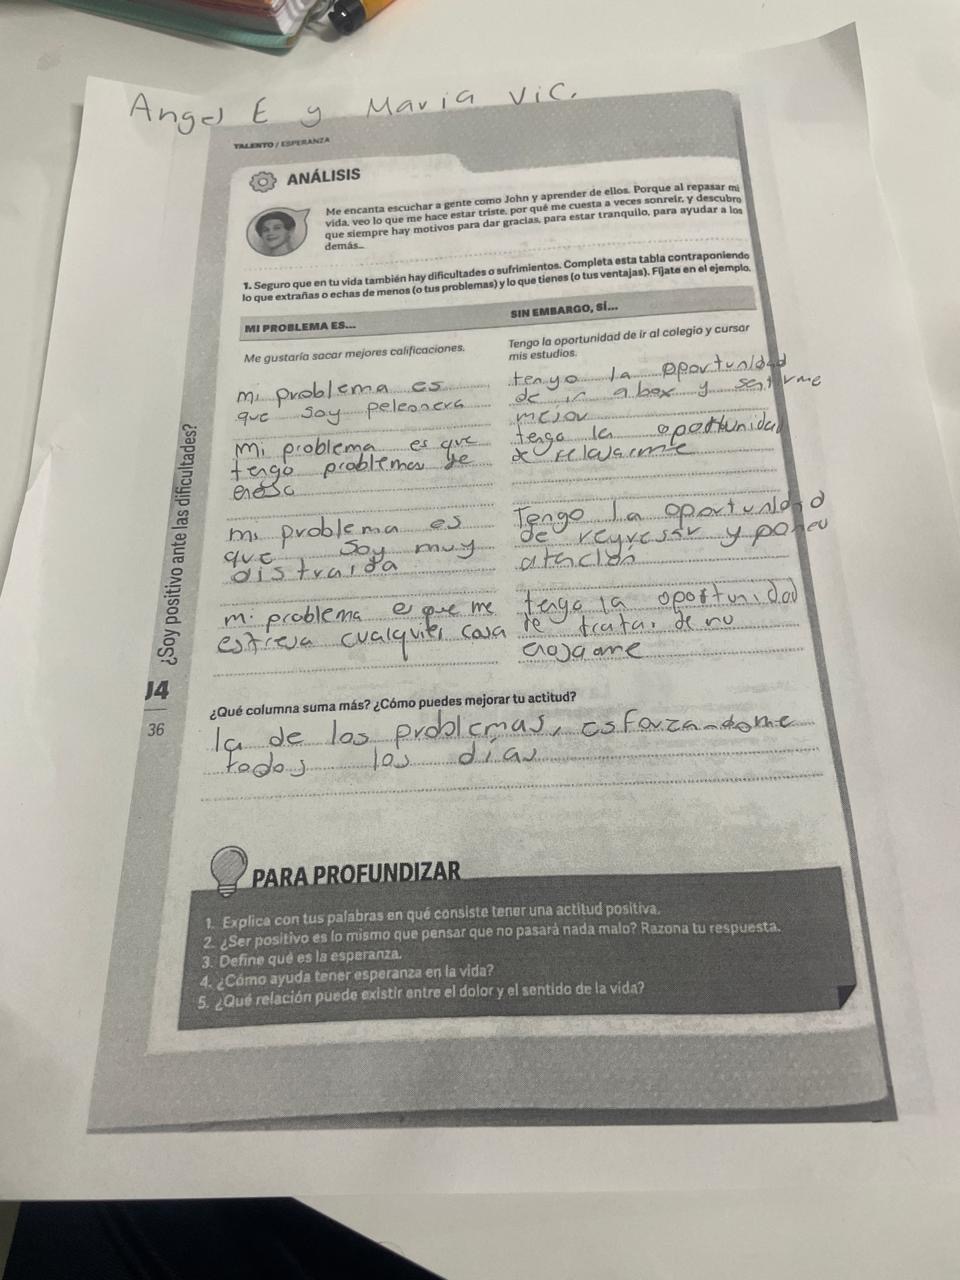 Angel E y Maria Vic.
TALENTO / ESPERANZA
ANÁLISIS
Me encanta escuchar a gente como John y aprender de ellos. Porque al repasar mi
vida, veo lo que me hace estar triste, por qué me cuesta a veces sonreír, y descubro
que siempre hay motivos para dar gracias, para estar tranquilo, para ayudar a los
demás...
1. Seguro que en tu vida también hay dificultades o sufrimientos. Completa esta tabla contraponiendo
lo que extrañas o echas de menos (o tus problemas) y lo que tienes (o tus ventajas). Fíjate en el ejemplo.
MI PROBLEMA ES...
SIN EMBARGO, SÍ...
Me gustaría sacar mejores calificaciones.
Tengo la oportunidad de ir al colegio y cursar
mis estudios.
mi problema es
que soy peleonera
tengo la oportunidad
de ir a box y sentirme
mejor
Mi problema es que
tengo problemas de
enojo
tengo la oportunidad
de relajarme
mi problema es
que soy muy
distraida
Tengo la oportunidad
de regresar y poner
atención
mi problema es que me
estresa cualquier cosa
tengo la oportunidad
de tratar de no
enojarme
¿Qué columna suma más? ¿Cómo puedes mejorar tu actitud?
la de los problemas, esforzandome
todos los días
¿Soy positivo ante las dificultades?
J4
36
PARA PROFUNDIZAR
1. Explica con tus palabras en qué consiste tener una actitud positiva.
2. ¿Ser positivo es lo mismo que pensar que no pasará nada malo? Razona tu respuesta.
3. Define qué es la esperanza.
4. ¿Cómo ayuda tener esperanza en la vida?
5. ¿Qué relación puede existir entre el dolor y el sentido de la vida?